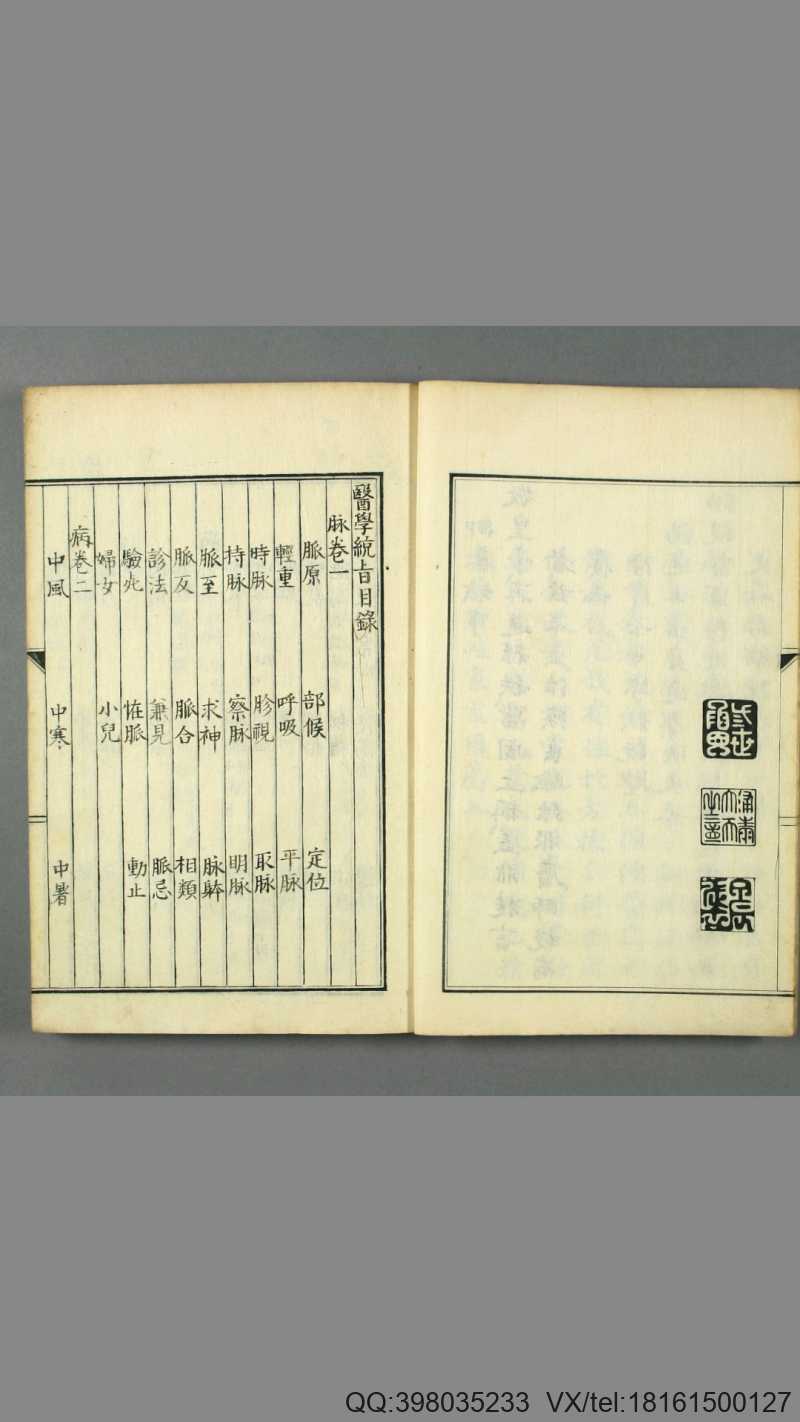 醫學統旨目錄
脉卷一
脈原 部候 定位
輕重 呼吸 平脉
時脉 胗視 取脉
持脉 察脉 明脉
脈至 求神 脉躰
脈反 脈合 相類
診法 兼見 脈忌
驗死 恠脈 動止
婦女 小兒
病卷二
中風 中寒 中暑
QQ:398035233 VX/tel:18161500127